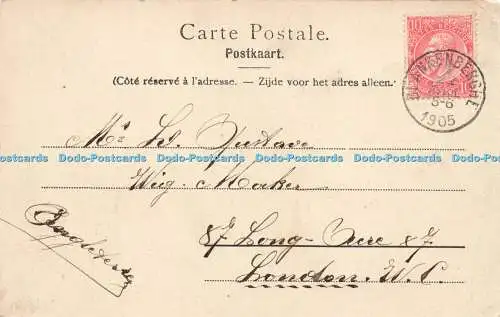 Carte Postale.
Postkaart.
(Côté réservé à l'adresse. — Zijde voor het adres alleen.)
10
BLANKENBERGHE
5-6
1905
Mr. Gustave
Wig-Maker
87 Long-Acre 87
London. W.C.
Angleterre
Dodo-Postcards Dodo-Postcards Dodo-Postcards Dodo-Postcards Dodo-Postcards Dodo-Postcards